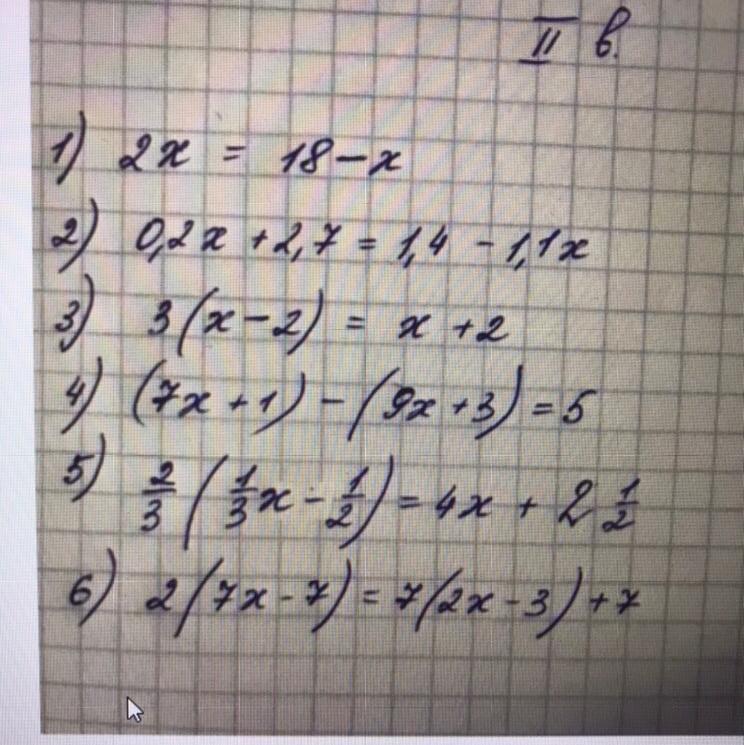 II в.
1) 2x = 18 - x
2) 0,2x + 2,7 = 1,4 - 1,1x
3) 3(x - 2) = x + 2
4) (7x + 1) - (9x + 3) = 5
5) 2/3 (1/3 x - 1/2) = 4x + 2 1/2
6) 2(7x - 7) = 7(2x - 3) + 7